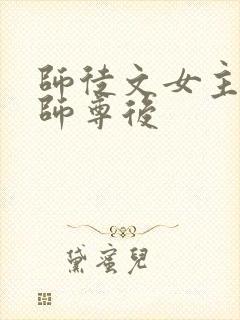 師徒文女主
師尊後
黛蜜兒